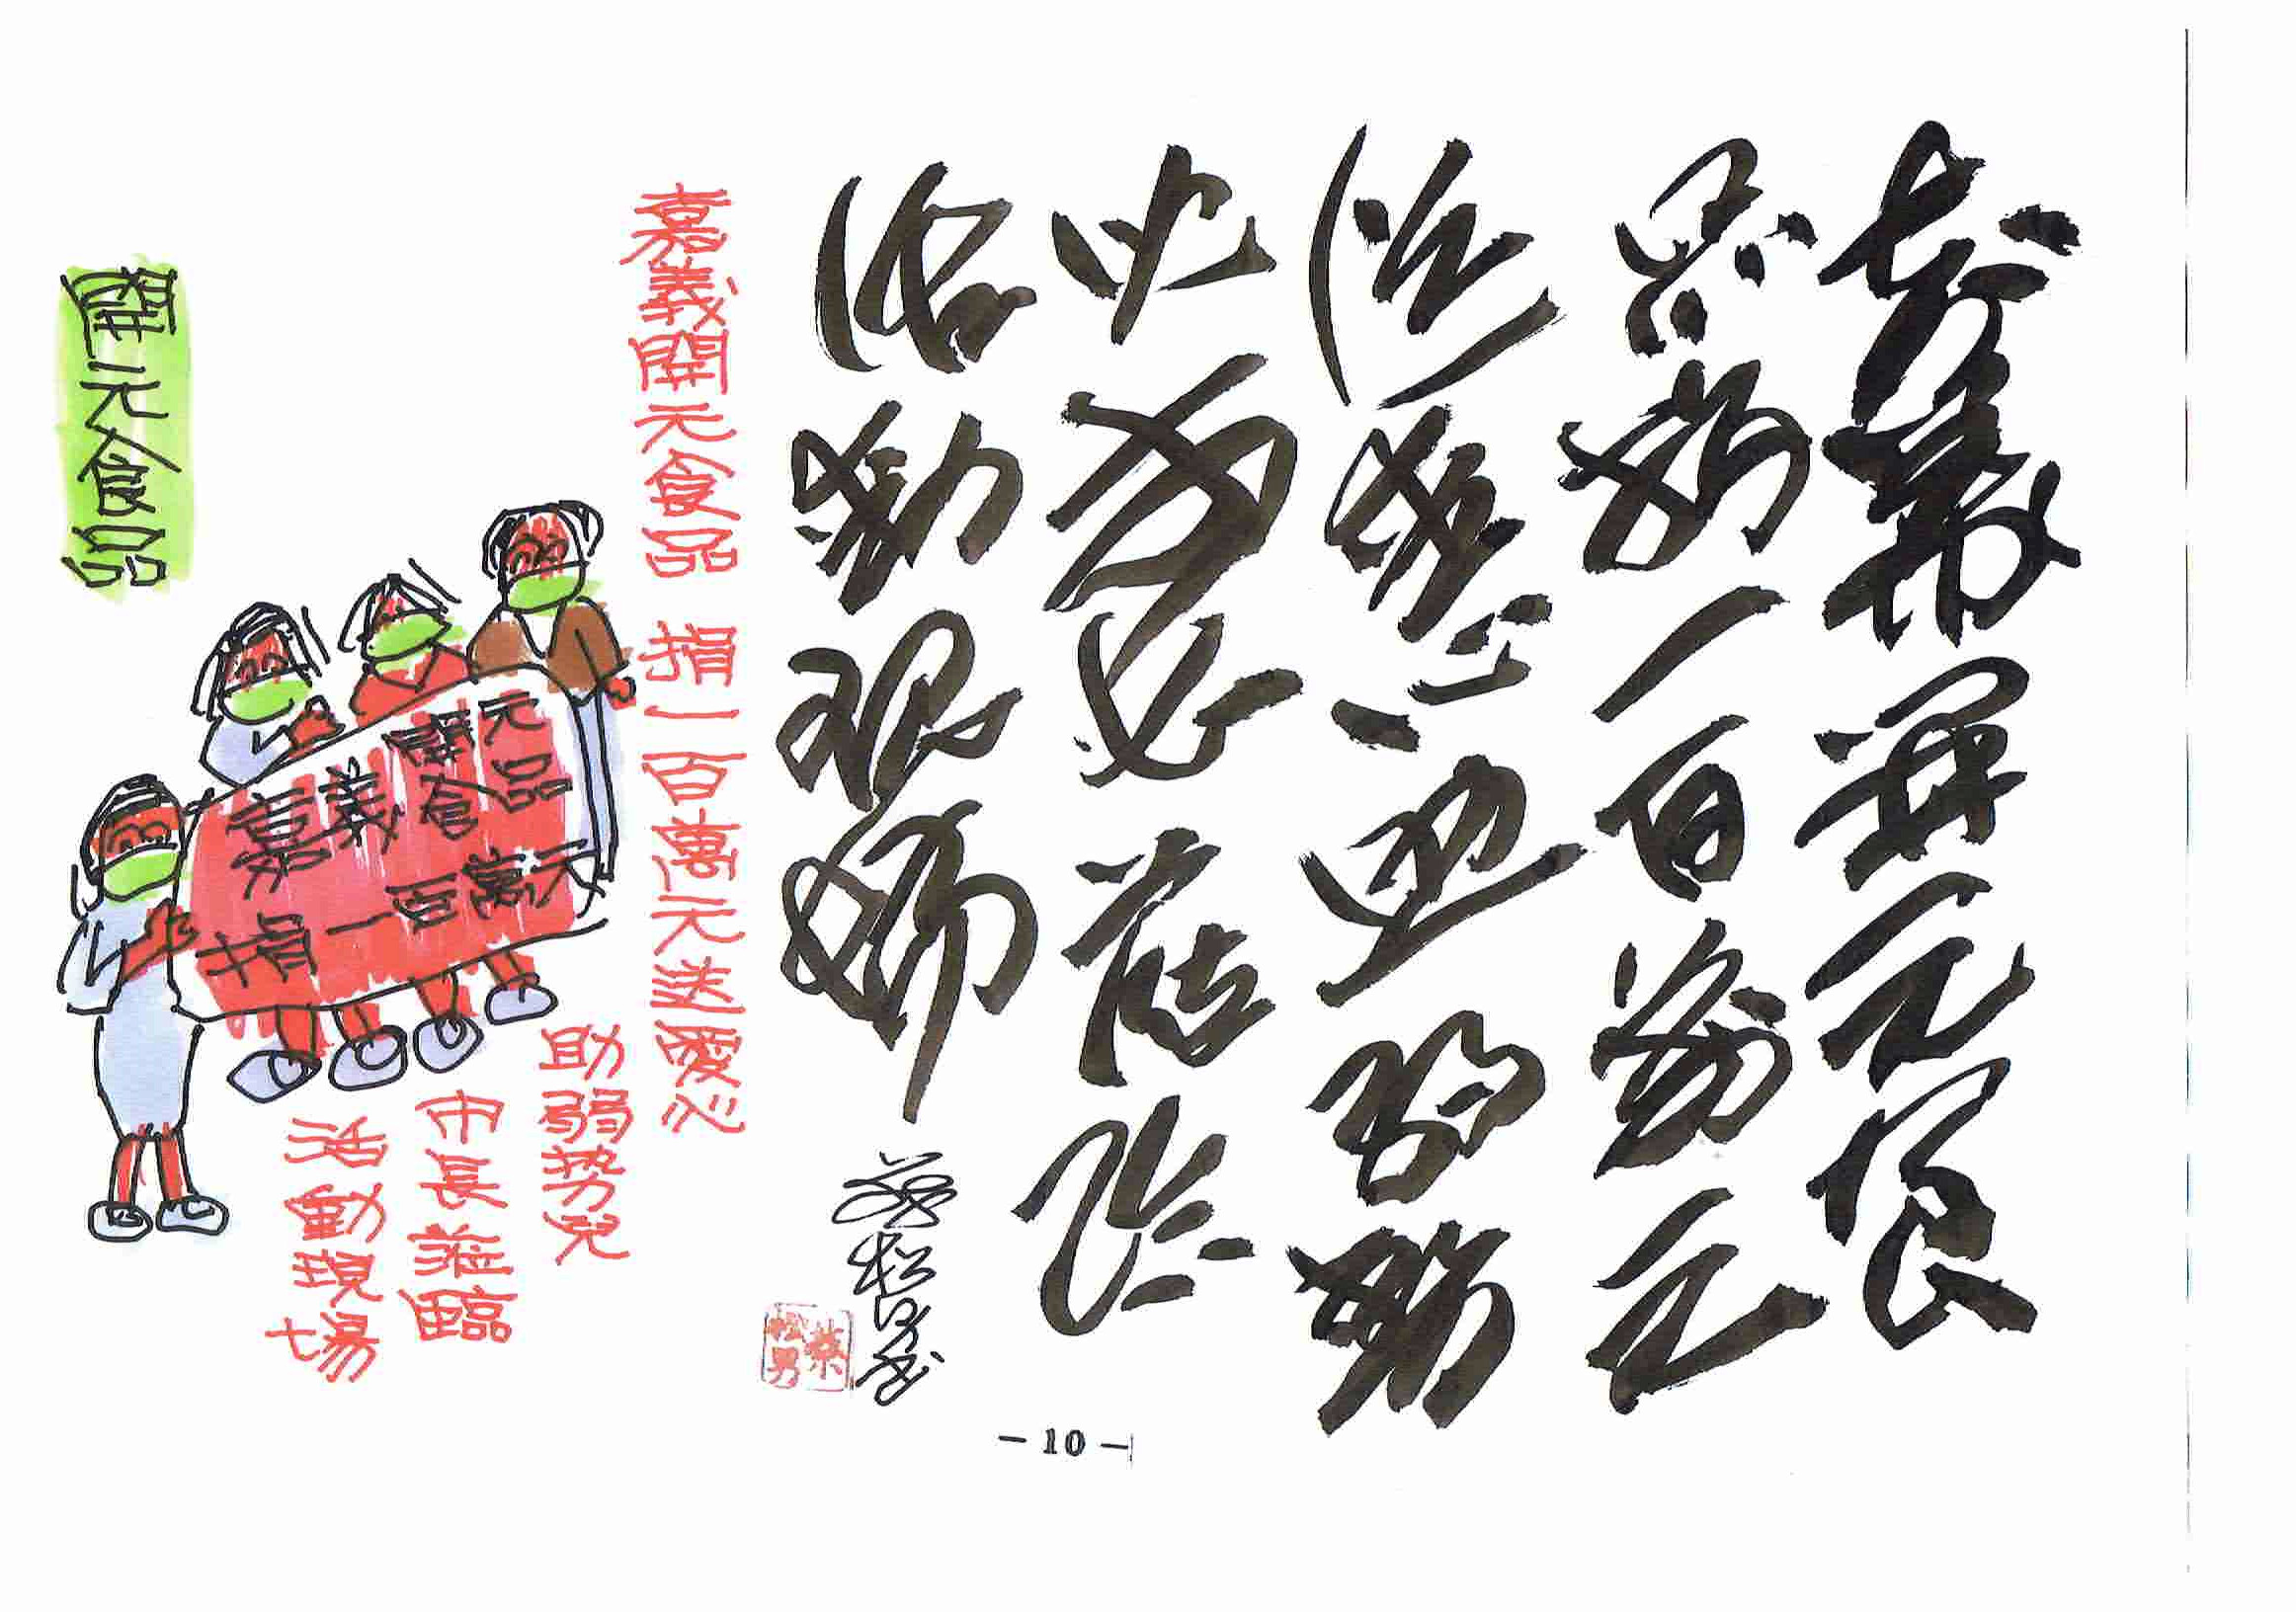 嘉義開元食
品捐一百萬元
送愛心助弱勢
兒市長蒞臨
活動現場
蔡松男書
蔡松男
嘉義開元食品 捐一百萬元送愛心
助弱势兒
市長蒞臨
活動現場
嘉義開元食品
捐一百萬元
開元食品
- 10 -